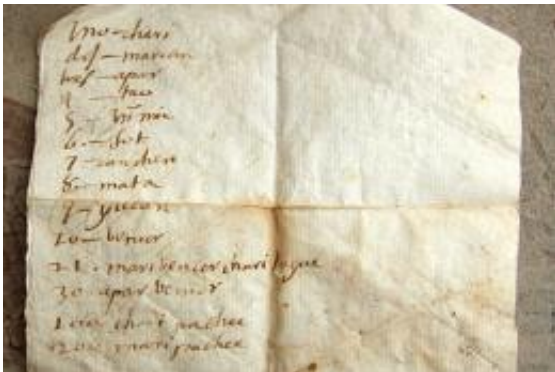 Uno - chari
dos - marian
tres - apar
4 - tau
5 -
6 - sut
7 - canchen
8 - mata
9 - yucan
10 - bencor
21 - maribencor chari
30 - apar bencor
100 chari pachac
200 mari pachac